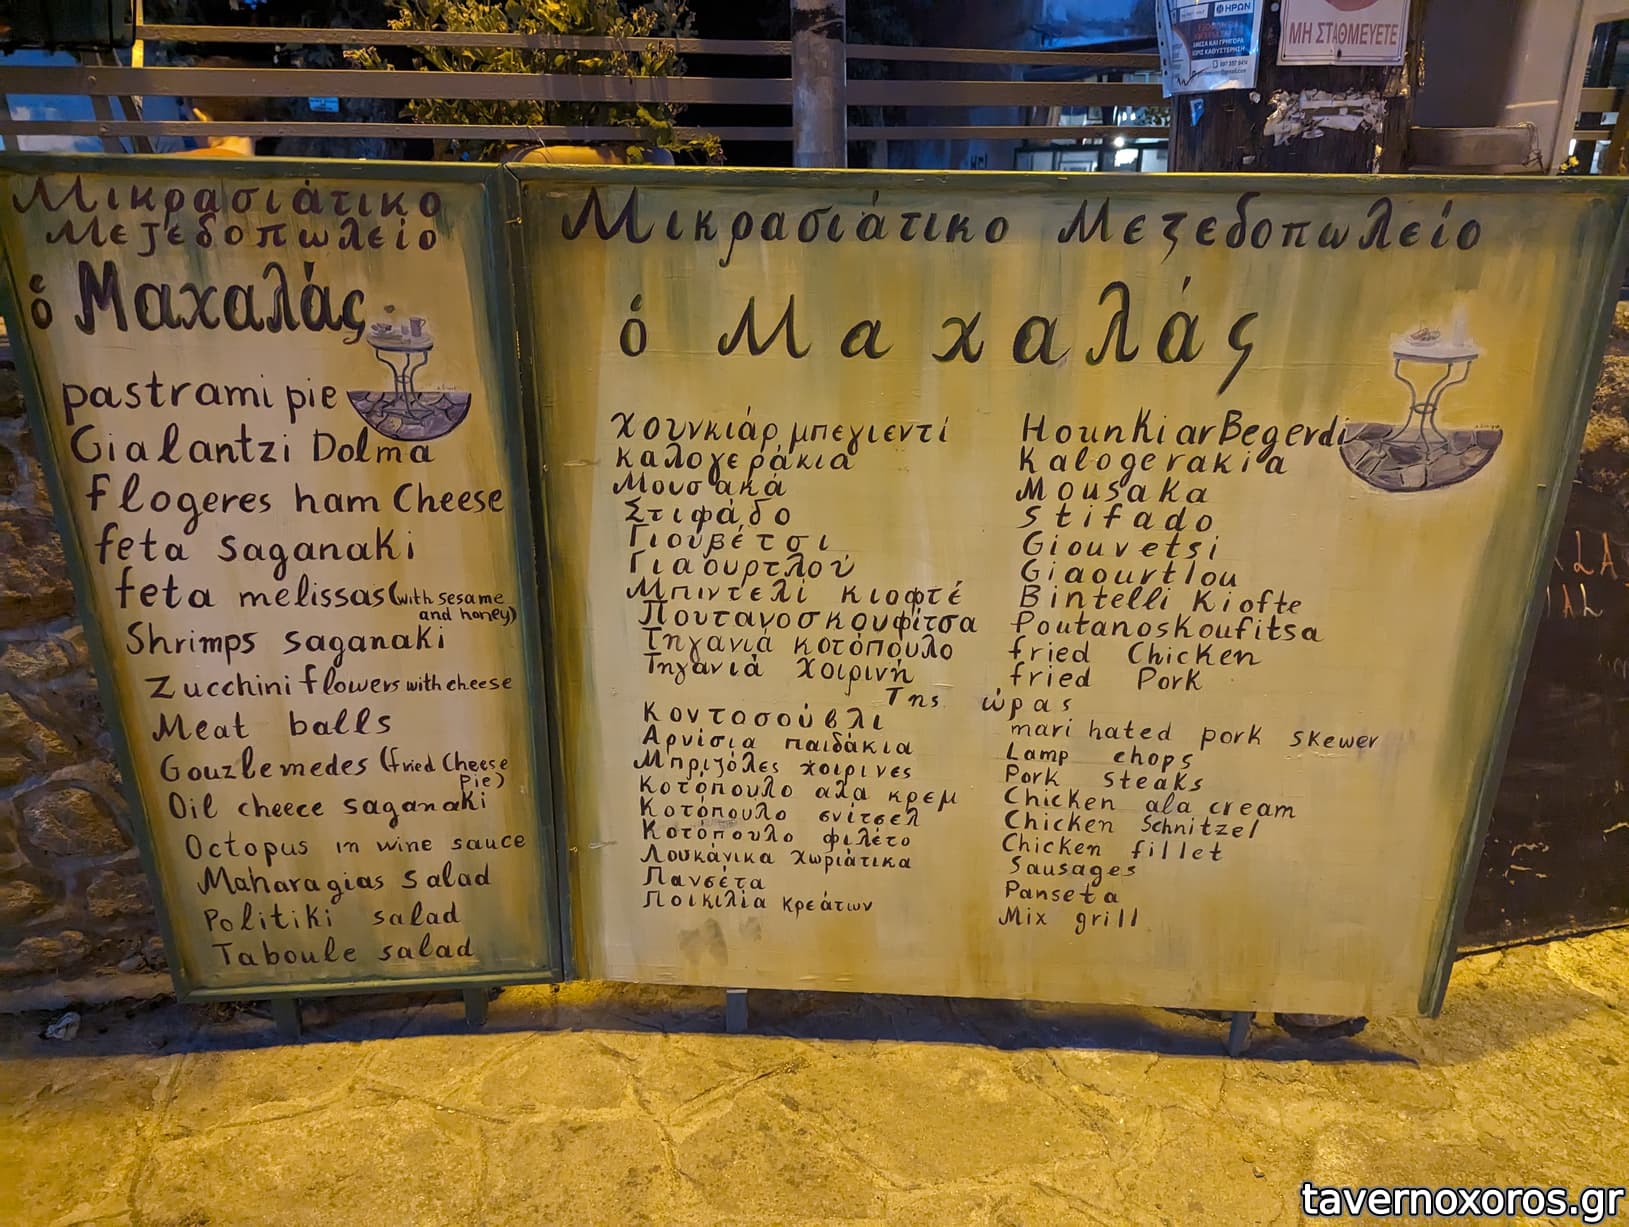 ΗΡΩΝ
ΑΜΕΣΑ ΚΑΙ ΓΡΗΓΟΡΑ
ΧΩΡΙΣ ΚΑΘΥΣΤΕΡΗΣΗ
ΜΗ ΣΤΑΘΜΕΥΕΤΕ
Μικρασιάτικο
Μεζεδοπωλείο
ό Μαχαλάς
pastrami pie
Gialantzi Dolma
flogeres ham Cheese
feta saganaki
feta melissas (with sesame
and honey)
Shrimps saganaki
Zucchini flowers with cheese
Meat balls
Gouzlemedes (fried Cheese
Pie)
Oil cheece saganaki
Octopus in wine sauce
Maharagias salad
Politiki salad
Taboule salad
Μικρασιάτικο Μεζεδοπωλείο
ό Μαχαλάς
Χουνκιάρ μπεγιεντί HounKiarBegerdi
καλογεράκια Kalogerakia
Μουσακά Mousaka
Στιφάδο Stifado
Γιουβέτσι Giouvetsi
Γιαουρτλού Giaourtlou
Μπιντελί κιοφτέ Bintelli Kiofte
Πουτανοσκουφίτσα Poutanoskoufitsa
Τηγανιά κοτόπουλο fried Chicken
Τηγανιά Χοιρινή fried Pork
Της ώρας
Κοντοσούβλι mari hated pork skewer
Αρνίσια παιδάκια Lamp chops
Μπριζόλες χοιρινες Pork steaks
Κοτόπουλο αλα κρεμ Chicken ala cream
Κοτόπουλο σνίτσελ Chicken Schnitzel
Κοτόπουλο φιλέτο Chicken fillet
Λουκάνικα χωριάτικα Sausages
Πανσέτα Panseta
Ποικιλία κρεάτων Mix grill
tavernoxoros.gr